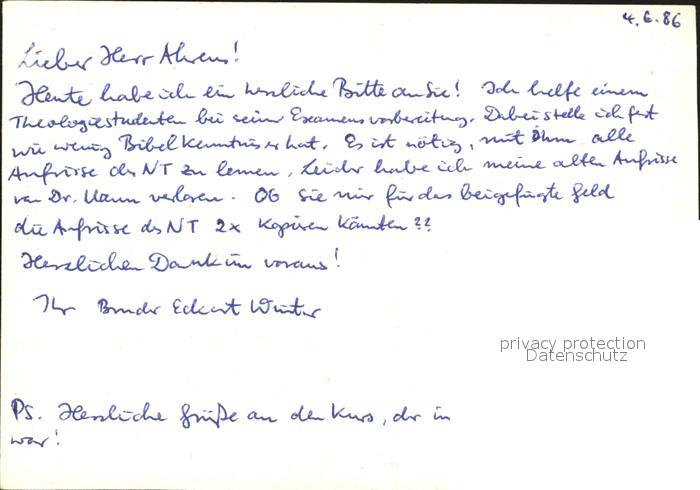 4.6.86
Lieber Herr Ahrens!
Heute habe ich ein herzliche Bitte an Sie! Ich helfe einem
Theologiestudenten bei seiner Examensvorbereitung. Dabei stelle ich fest
wie wenig Bibelkenntnis er hat. Es ist nötig, mit ihm alle
Aufrisse des NT zu lernen. Leider habe ich meine alten Aufrisse
von Dr. verloren. Ob Sie mir für das beigefügte Geld
die Aufrisse des NT 2x kopieren könnten??
Herzlichen Dank im voraus!
Ihr Bruder Eckart Winter
privacy protection
Datenschutz
PS. Herzliche Grüße an den Kurs, der in
war!